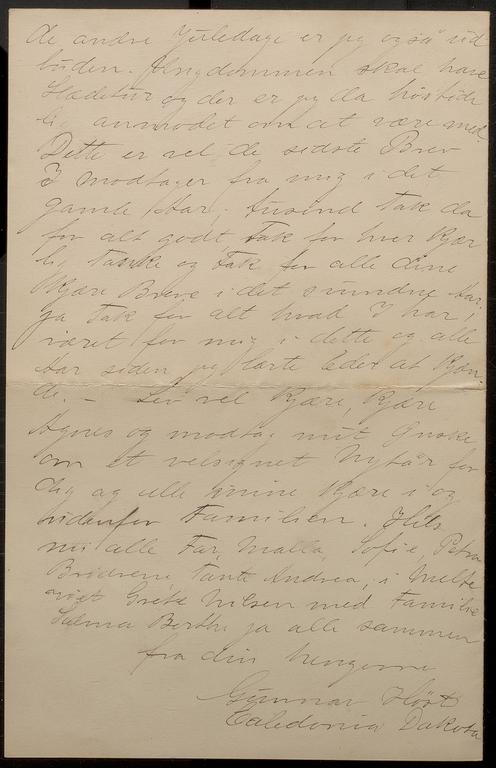 de andre Juledage er jeg også ud
buden. Ungdommen skal have
Slædetur og der er jeg da høistide
lig anmodet om at være med.
Dette er vel de sidste Brev
I modtager fra mig i det
gamle Aar; tusind tak da
for alt godt, Tak for hver Kjær
lig Tanke og Tak for alle dine
Kjære Breve i det svundne Aar;
ja Tak for alt hvad I har
været for mig i dette og alle
Aar siden jeg lærte Eder at Kjen
de. – Lev vel Kjære, Kjære
Agnes og modtag mit Ønske
om et velsignet Nytår for
dig og alle mine Kjære i og
udenfor Familien. Hils
mi alle Far, Malla, Sofie, Petra
Brødrene, Tante Andrea, i
Grete Nilsen med Familie
Selma Berthe ja alle sammen
fra din hengivne
Gunnar Høst
Caledonia Dakota